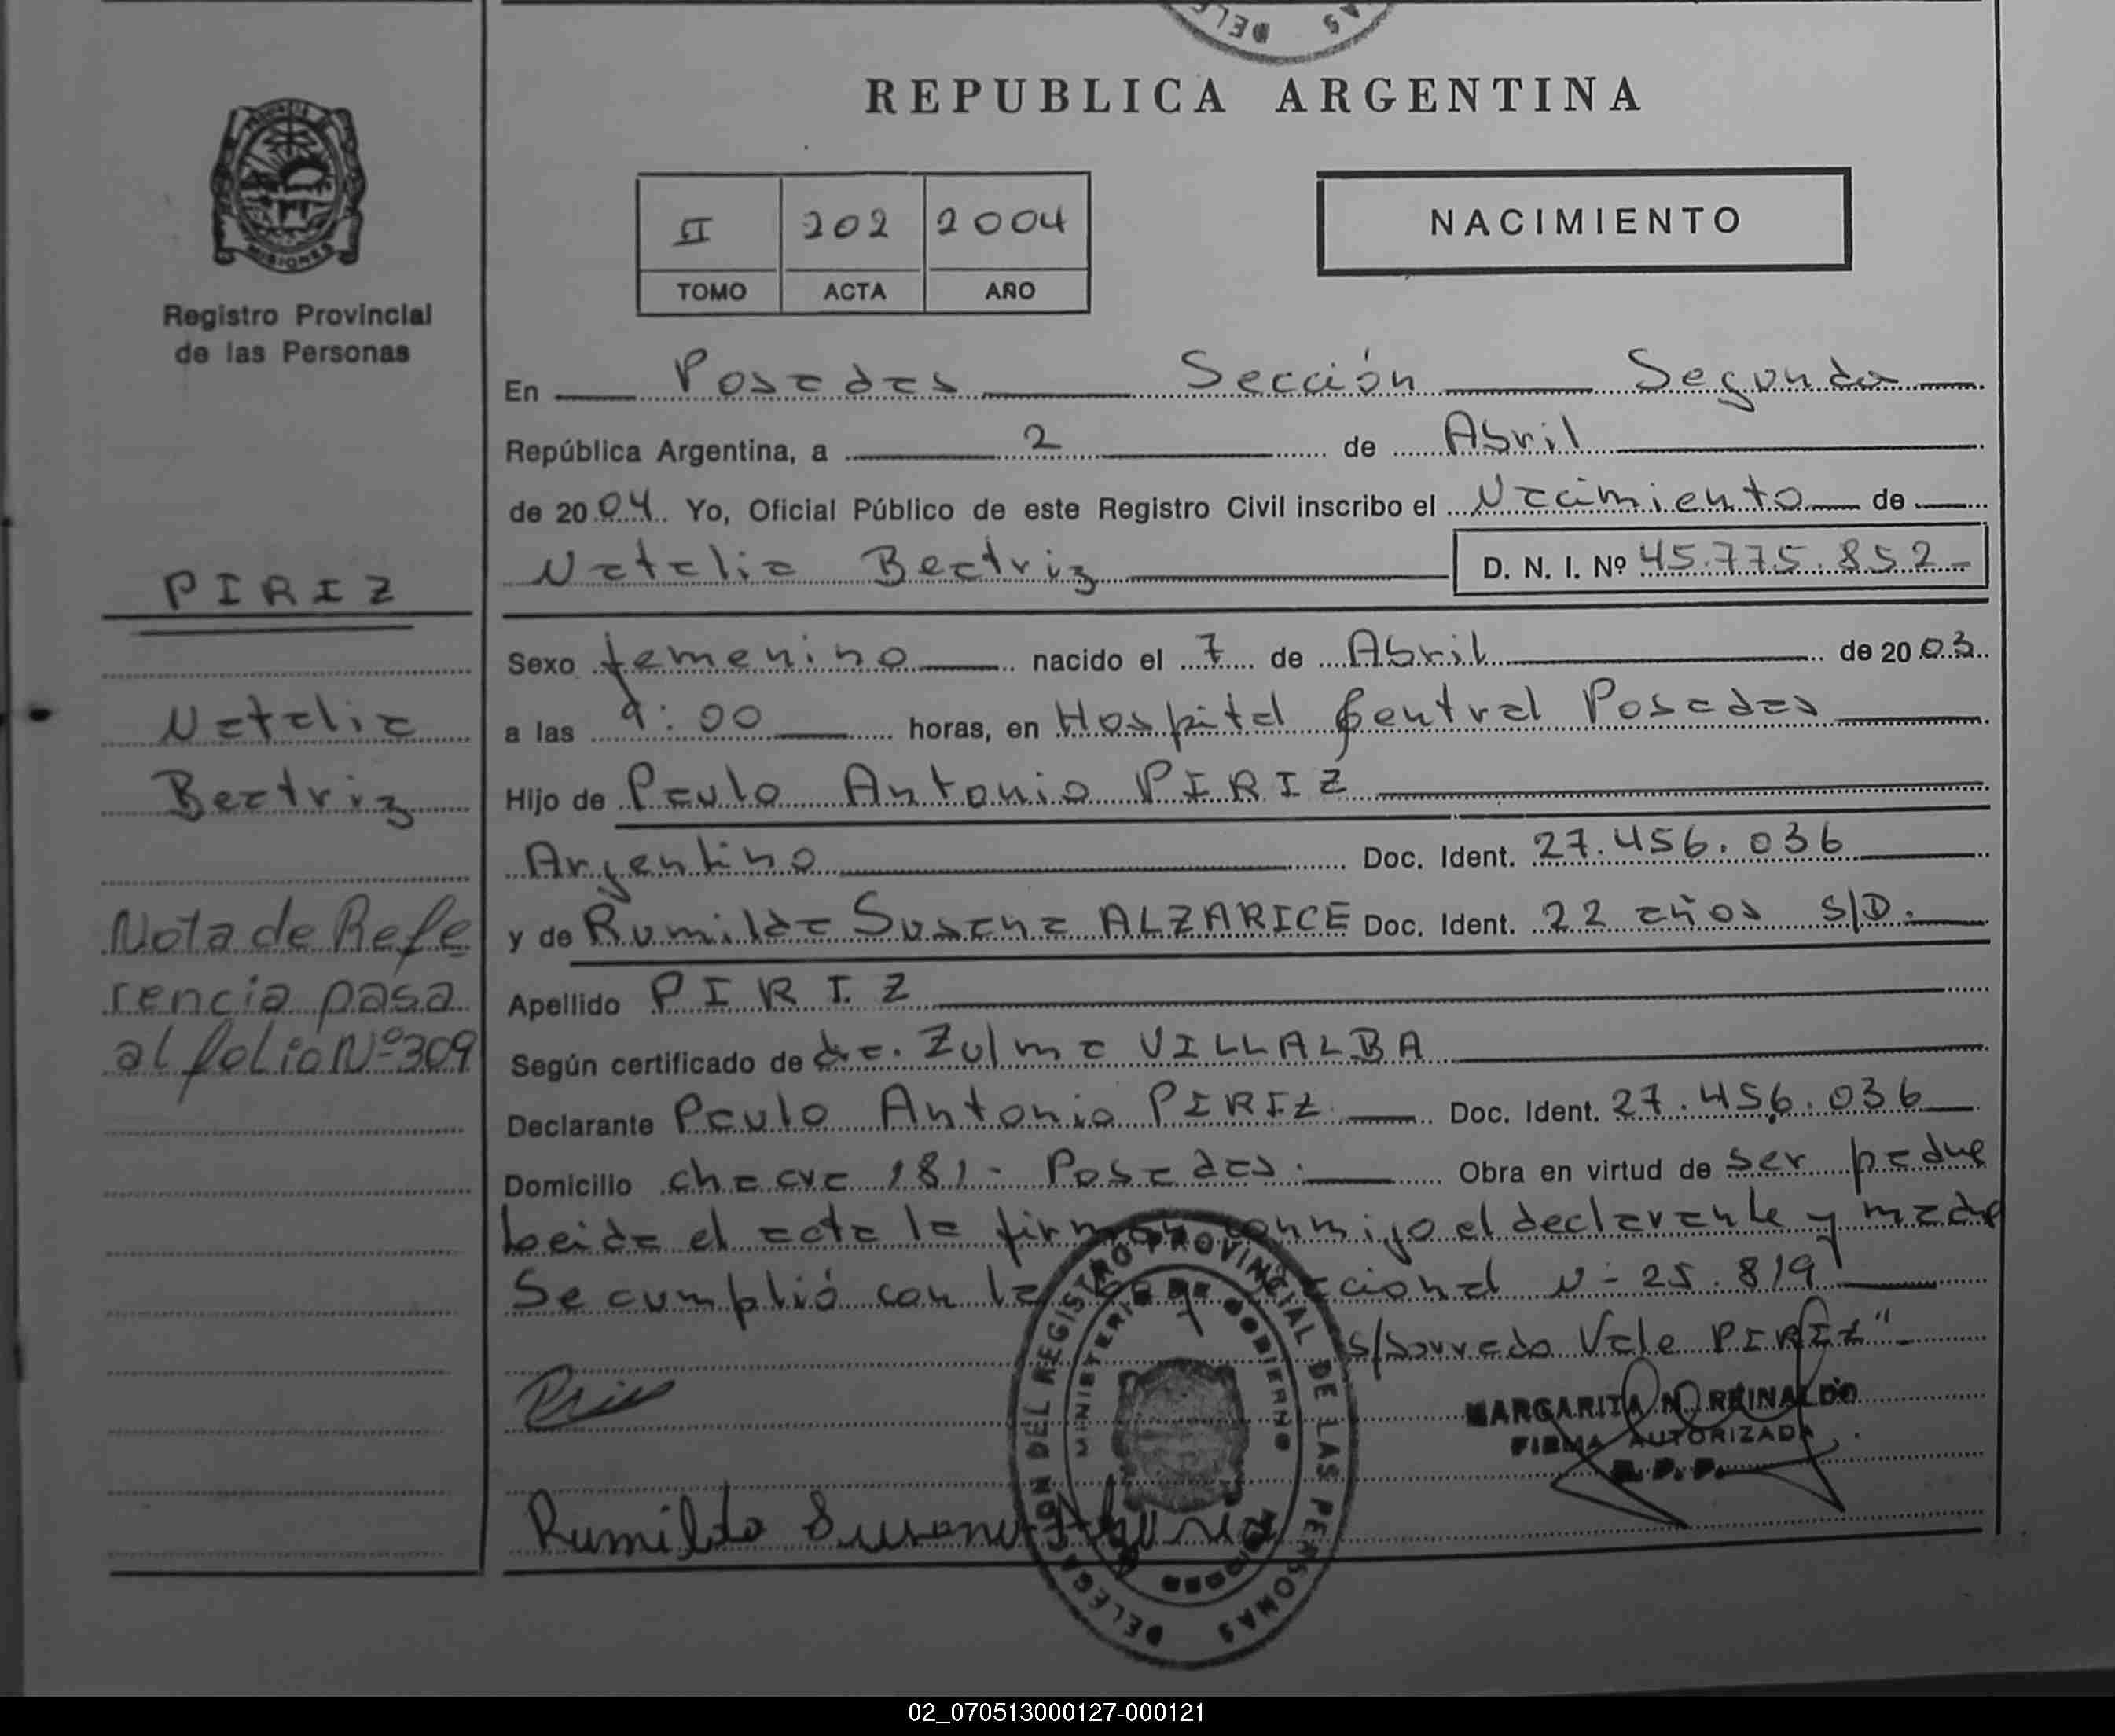 DELE AS
REPUBLICA ARGENTINA
MISIONES
Registro Provincial
de las Personas
II 202 2004
TOMO ACTA AÑO
NACIMIENTO
En Posadas Sección Segunda
República Argentina, a 2 de Abril
de 2004 Yo, Oficial Público de este Registro Civil inscribo el Nacimiento de
Natalia Beatriz D. N. I. Nº 45.775.852-
PIRIZ
Sexo femenino nacido el 7 de Abril de 2003
Natalia
a las 9:00 horas, en Hospital Central Posadas
Beatriz
Hijo de Paulo Antonio PIRIZ
Argentino Doc. Ident. 27.456.036
Nota de Refe
y de Rumilda Susana ALZARICE Doc. Ident. 22 años S/D.
rencia pasa
Apellido PIRIZ
al folio Nº 309
Según certificado de dra. Zulma VILLALBA
Declarante Paulo Antonio PIRIZ Doc. Ident. 27.456.036
Domicilio chacra 181- Posadas. Obra en virtud de ser padre
Leida el acta la firman conmigo el declarante y madre
Se cumplió con la Nº 25.819
s/borrado Vale PIRIZ"
MARGARITA N. REINALDO
FIRMA AUTORIZADA
R. P. P.
Rumilda Susana
DELEGACION DEL REGISTRO PROVINCIAL DE LAS PERSONAS
MINISTERIO DE GOBIERNO